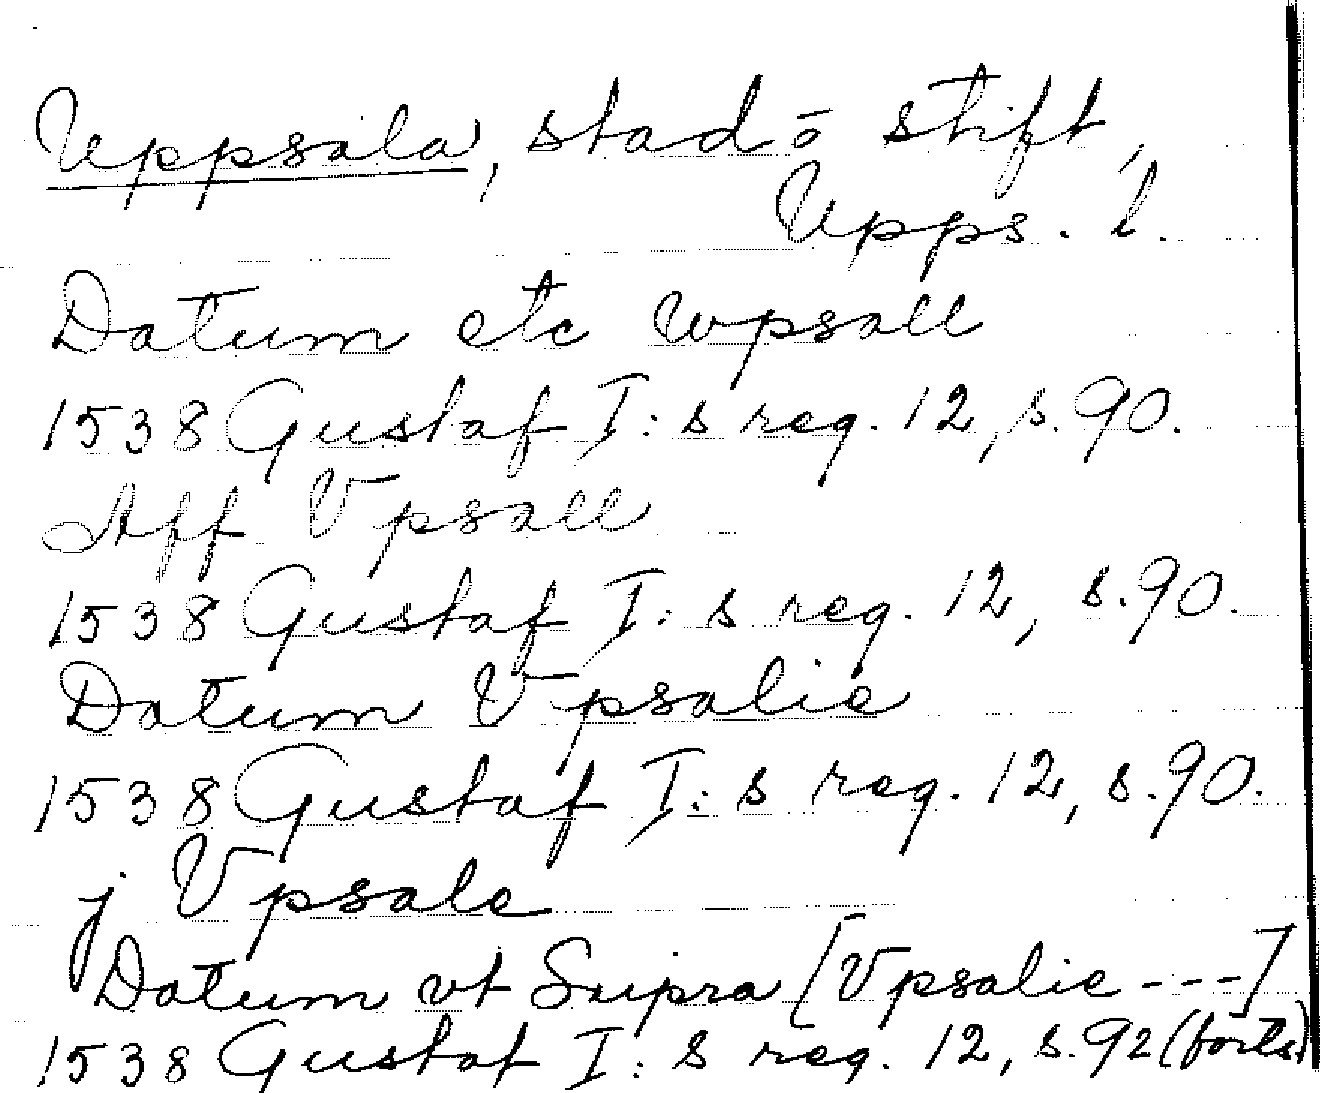 Uppsala, stad o stift,
Upps. l.
Datum etc wpsall
1538 Gustaf I: s reg. 12, s. 90.
Aff Vpsall
1538 Gustaf I: s reg. 12, s. 90.
Datum Vpsalie
1538 Gustaf I: s reg. 12, s. 90.
j Vpsale
Datum vt Supra [Vpsalie ---]
1538 Gustaf I: s reg. 12, s. 92 (forts)